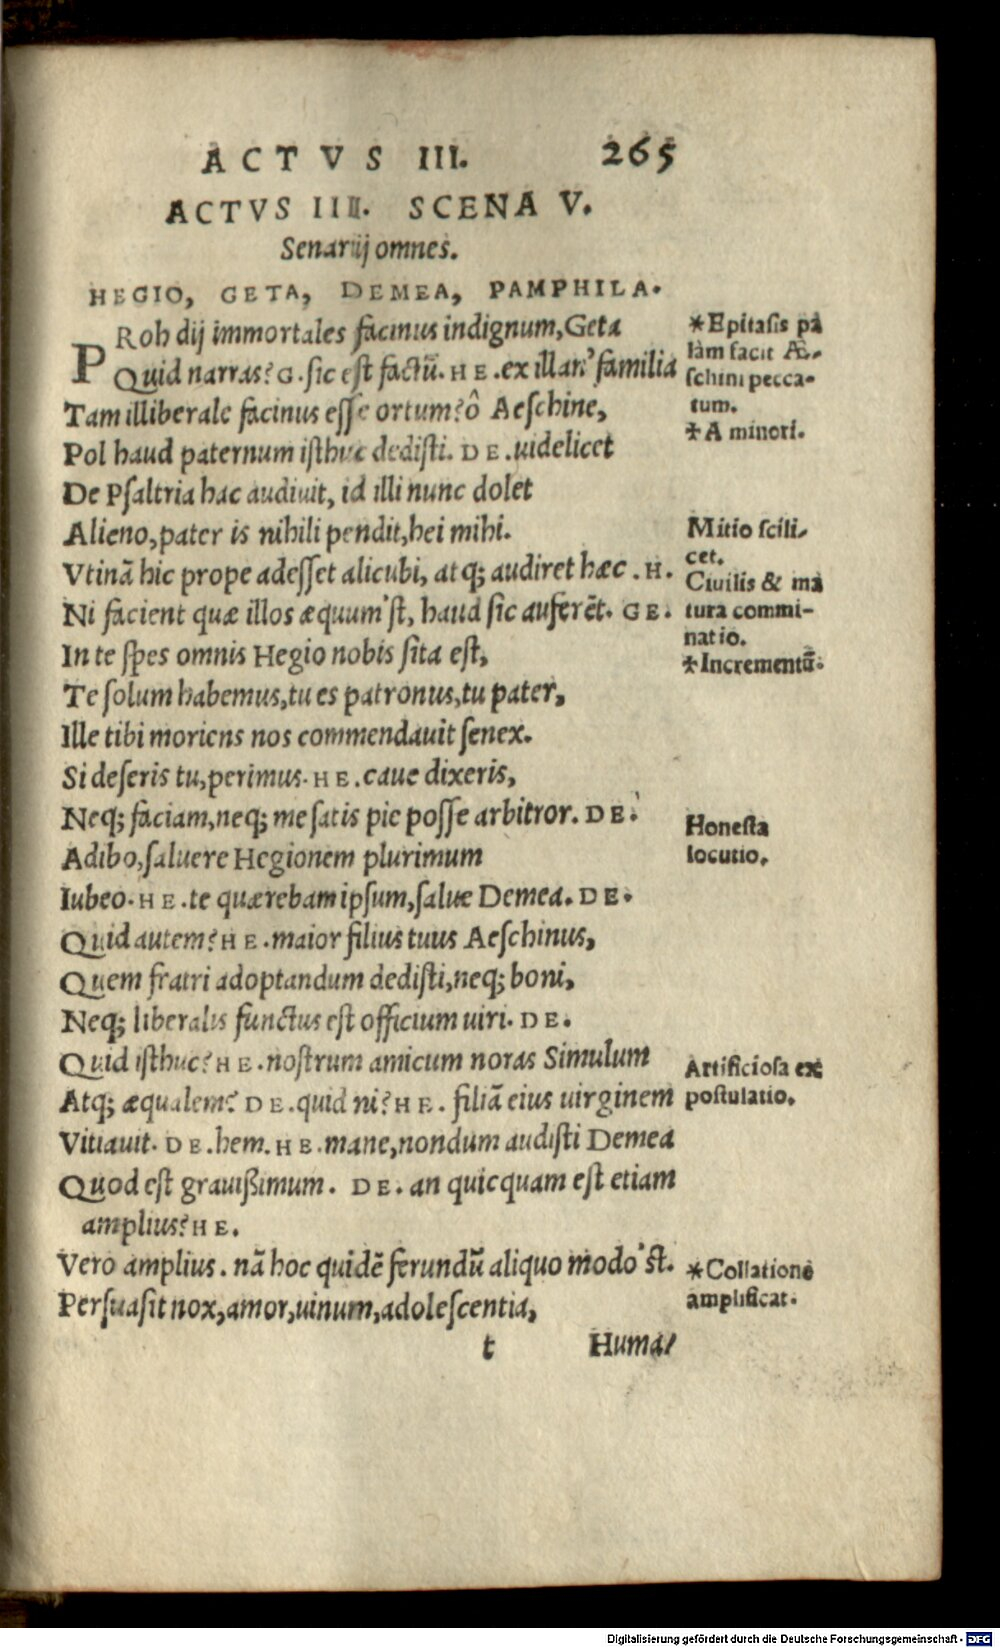 ACTVS III. 265
ACTVS IIII. SCENA V.
Senarij omnes.
HEGIO, GETA, DEMEA, PAMPHILA.
PRoh dij immortales facinus indignum, Geta
Quid narras? G. sic est factū. HE. ex illan' familia
Tam illiberale facinus esse ortum? ô Aeschine,
Pol haud paternum isthuc dedisti. DE. uidelicet
De Psaltria hac audiuit, id illi nunc dolet
Alieno, pater is nihili pendit, hei mihi.
Vtinā hic prope adesset alicubi, atq; audiret hæc. H.
Ni facient quæ illos æquum'st, haud sic auferēt. GE.
In te spes omnis Hegio nobis sita est,
Te solum habemus, tu es patronus, tu pater,
Ille tibi moriens nos commendauit senex.
Si deseris tu, perimus. HE. caue dixeris,
Neq; faciam, neq; me satis pie posse arbitror. DE.
Adibo, saluere Hegionem plurimum
Iubeo. HE. te quærebam ipsum, salue Demea. DE.
Quid autem? HE. maior filius tuus Aeschinus,
Quem fratri adoptandum dedisti, neq; boni,
Neq; liberalis functus est officium uiri. DE.
Quid isthuc? HE. nostrum amicum noras Simulum
Atq; æqualem? DE. quid ni? HE. filiā eius uirginem
Vitiauit. DE. hem. HE. mane, nondum audisti Demea
Quod est grauißimum. DE. an quicquam est etiam
amplius? HE.
Vero amplius. nā hoc quidē ferundū aliquo modo'st.
Persuasit nox, amor, uinum, adolescentia,
t Huma/
*Epitasis pa
làm facit Æ-
schini pecca-
tum.
✶A minori.
Mitio scili-
cet.
Ciuilis & ma
tura commi-
natio.
✶Incrementū.
Honesta
locutio.
Artificiosa ex
postulatio.
*Collatione
amplificat.
Digitalisierung gefördert durch die Deutsche Forschungsgemeinschaft - DFG